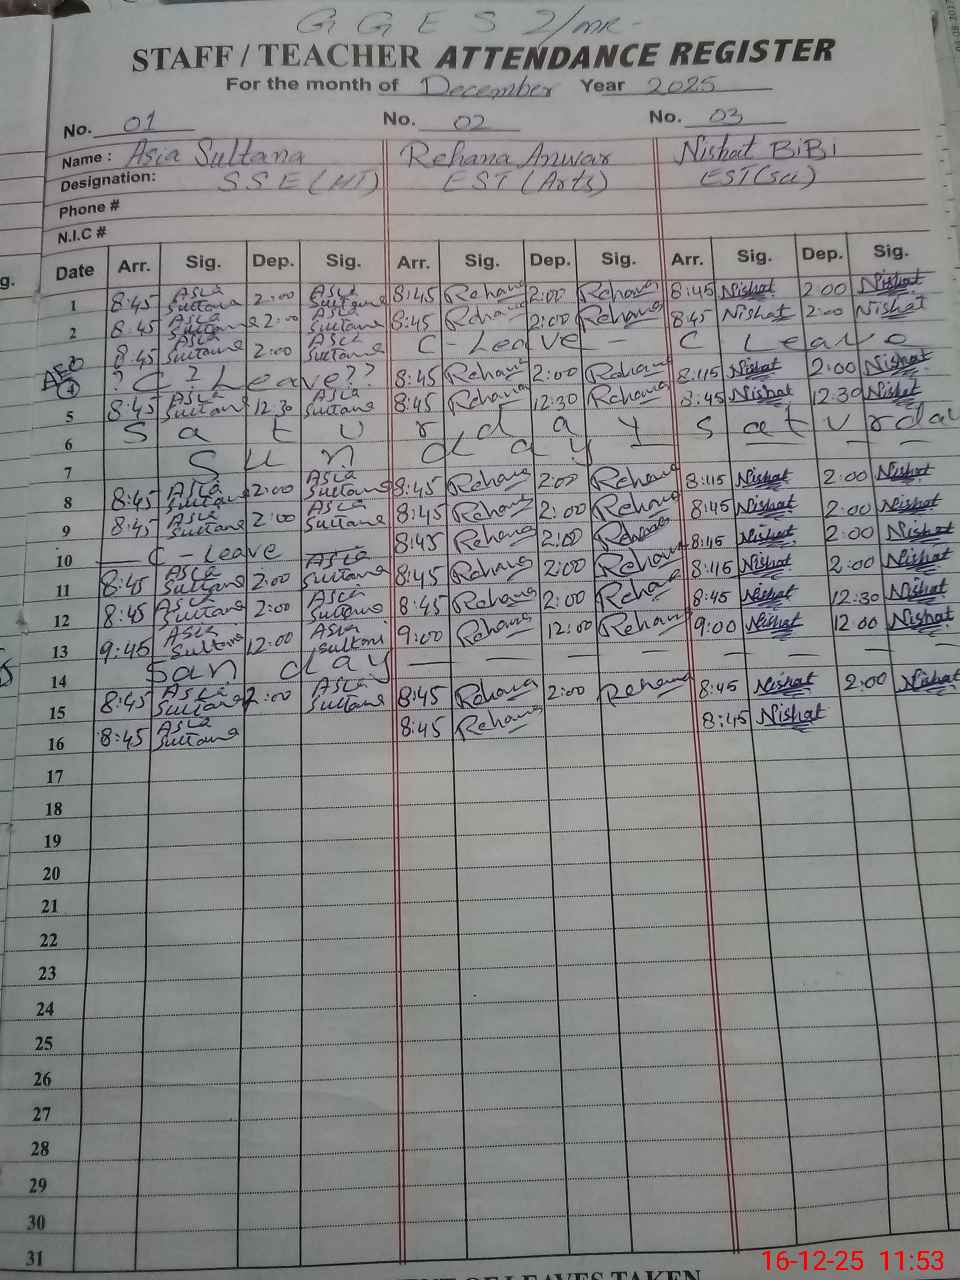 G G E S 2/MR-
STAFF / TEACHER ATTENDANCE REGISTER
For the month of December Year 2025
No. 01 No. 02 No. 03
Name : Asia Sultana Rehana Anwar Nishat BiBi
Designation: SSE (HT) EST (Arts) EST (Sci)
Phone #
N.I.C #
Date Arr. Sig. Dep. Sig. Arr. Sig. Dep. Sig. Arr. Sig. Dep. Sig.
1 8:45 Asia Sultana 2:00 Asia Sultana 8:45 Rehana 2:00 Rehana 8:45 Nishat 2:00 Nishat
2 8:45 Asia Sultana 2:00 Asia Sultana 8:45 Rehana 2:00 Rehana 8:45 Nishat 2:00 Nishat
8:45 Asia Sultana 2:00 Asia Sultana C - Leave - C Leave
AEO 4 ? C ? Leave ?? 8:45 Rehana 2:00 Rehana 8:45 Nishat 2:00 Nishat
5 8:45 Asia Sultana 12:30 Asia Sultana 8:45 Rehana 12:30 Rehana 8:45 Nishat 12:30 Nishat
6 Saturday Saturday
7 Sunday
8 8:45 Asia Sultana 2:00 Asia Sultana 8:45 Rehana 2:00 Rehana 8:45 Nishat 2:00 Nishat
9 8:45 Asia Sultana 2:00 Asia Sultana 8:45 Rehana 2:00 Rehana 8:45 Nishat 2:00 Nishat
10 C - Leave 8:45 Rehana 2:00 Rehana 8:45 Nishat 2:00 Nishat
11 8:45 Asia Sultana 2:00 Asia Sultana 8:45 Rehana 2:00 Rehana 8:45 Nishat 2:00 Nishat
12 8:45 Asia Sultana 2:00 Asia Sultana 8:45 Rehana 2:00 Rehana 8:45 Nishat 12:30 Nishat
13 9:45 Asia Sultana 12:00 Asia Sultana 9:00 Rehana 12:00 Rehana 9:00 Nishat 12:00 Nishat
14 San day
15 8:45 Asia Sultana 2:00 Asia Sultana 8:45 Rehana 2:00 Rehana 8:45 Nishat 2:00 Nishat
16 8:45 Asia Sultana 8:45 Rehana 8:45 Nishat
17
18
19
20
21
22
23
24
25
26
27
28
29
30
31
OF LEAVES TAKEN
16-12-25 11:53